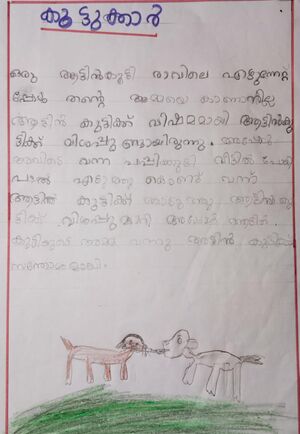 കൂട്ടുക്കാർ
ഒരു ആട്ടിൻകുട്ടി രാവിലെ എഴുന്നേറ്റ
പ്പോൾ തന്റെ അമ്മയെ കാണാനില്ല
ആട്ടിൻ കുട്ടിക്ക് വിഷമമായി ആട്ടിൻകു
ട്ടിക്ക് വിശപ്പുണ്ടായിരുന്നു. അപ്പോൾ
അവിടെ വന്ന പപ്പിക്കുട്ടി വീട്ടിൽ പോയി
പാൽ എടുത്തു കൊണ്ട് വന്ന്
ആട്ടിൻ കുട്ടിക്ക് കൊടുത്തു ആട്ടിൻകു
ട്ടിക്ക് വിശപ്പു മാറി അപ്പോൾ ആട്ടിൻ
കുട്ടിയുടെ അമ്മ വന്നു ആട്ടിൻ കുട്ടിക്ക്
സന്തോഷമായി.